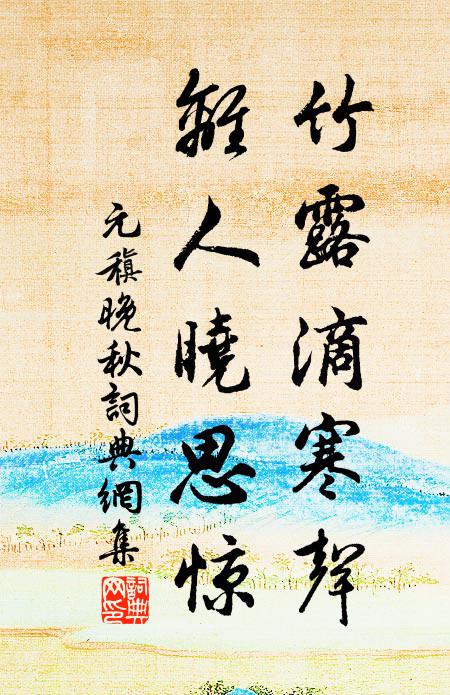 竹露滴寒聲
離人曉思惊
元稹晚秋詞典網集
詞典網印